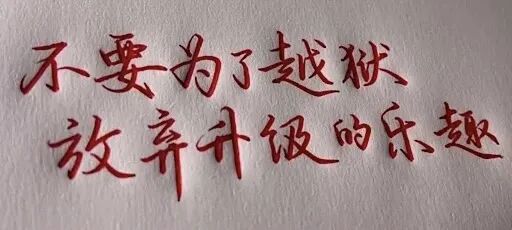 不要为了越狱
放弃升级的乐趣